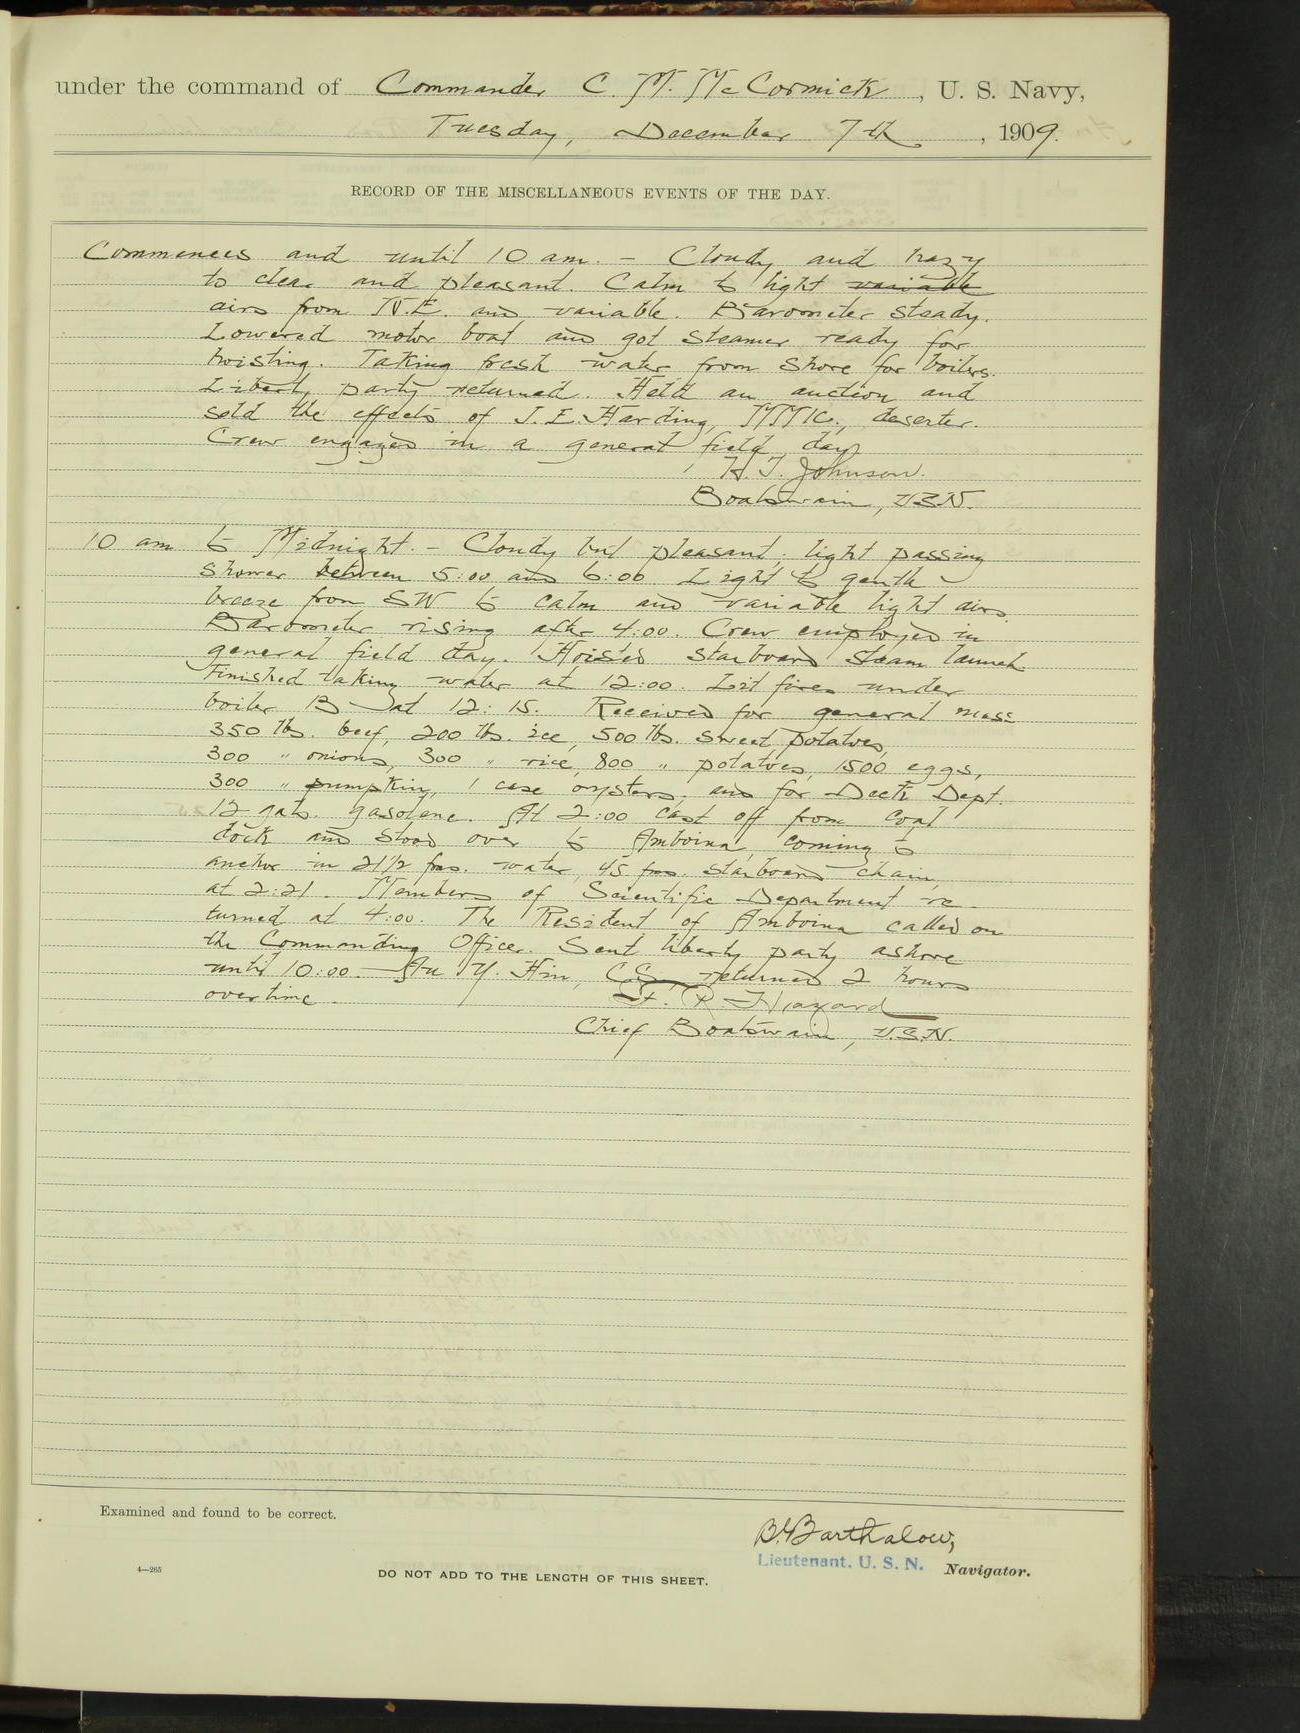 under the command of Commander C. M. McCormick, U. S. Navy,
Tuesday, December 7th, 1909.
RECORD OF THE MISCELLANEOUS EVENTS OF THE DAY.
Commences and until 10 am. - Cloudy and hazy
to clear and pleasant. Calm to light variable
airs from N.E. and variable. Barometer steady.
Lowered motor boat and got steamer ready for
hoisting. Taking fresh water from shore for boilers.
Liberty party returned. Held an auction and
sold the effects of J. E. Harding, deserter.
Crew engaged in a general field day
H. T. Johnson.
Boatswain, USN.
10 am to Midnight. - Cloudy but pleasant, light passing
shower between 5:00 and 6:00 Light to gentle
breeze from SW to calm and variable light airs.
Barometer rising after 4:00. Crew employed in
general field day. Hoisted starboard steam launch
Finished taking water at 12:00. Lit fires under
boiler B at 12:15. Received for general mess
350 lbs. beef, 200 lbs. ice, 500 lbs. sweet potatoes,
300 " onions, 300 " rice, 800 " potatoes, 1500 eggs,
300 " pumpkin, 1 case oysters, and for Deck Dept.
12 gals. gasolene. At 2:00 cast off from coal
dock and stood over to Amboina, coming to
anchor in 21 1/2 fms. water, 45 fms. starboard chain,
at 2:21. Members of Scientific Department re-
turned at 4:00. The Resident of Amboina called on
the Commanding Officer. Sent liberty party ashore
until 10:00. Ah Y. Hin, returned 2 hours
overtime.
Hazard
Chief Boatswain, U.S.N.
Examined and found to be correct.
Barthalow,
Lieutenant, U. S. N. Navigator.
4—265
DO NOT ADD TO THE LENGTH OF THIS SHEET.